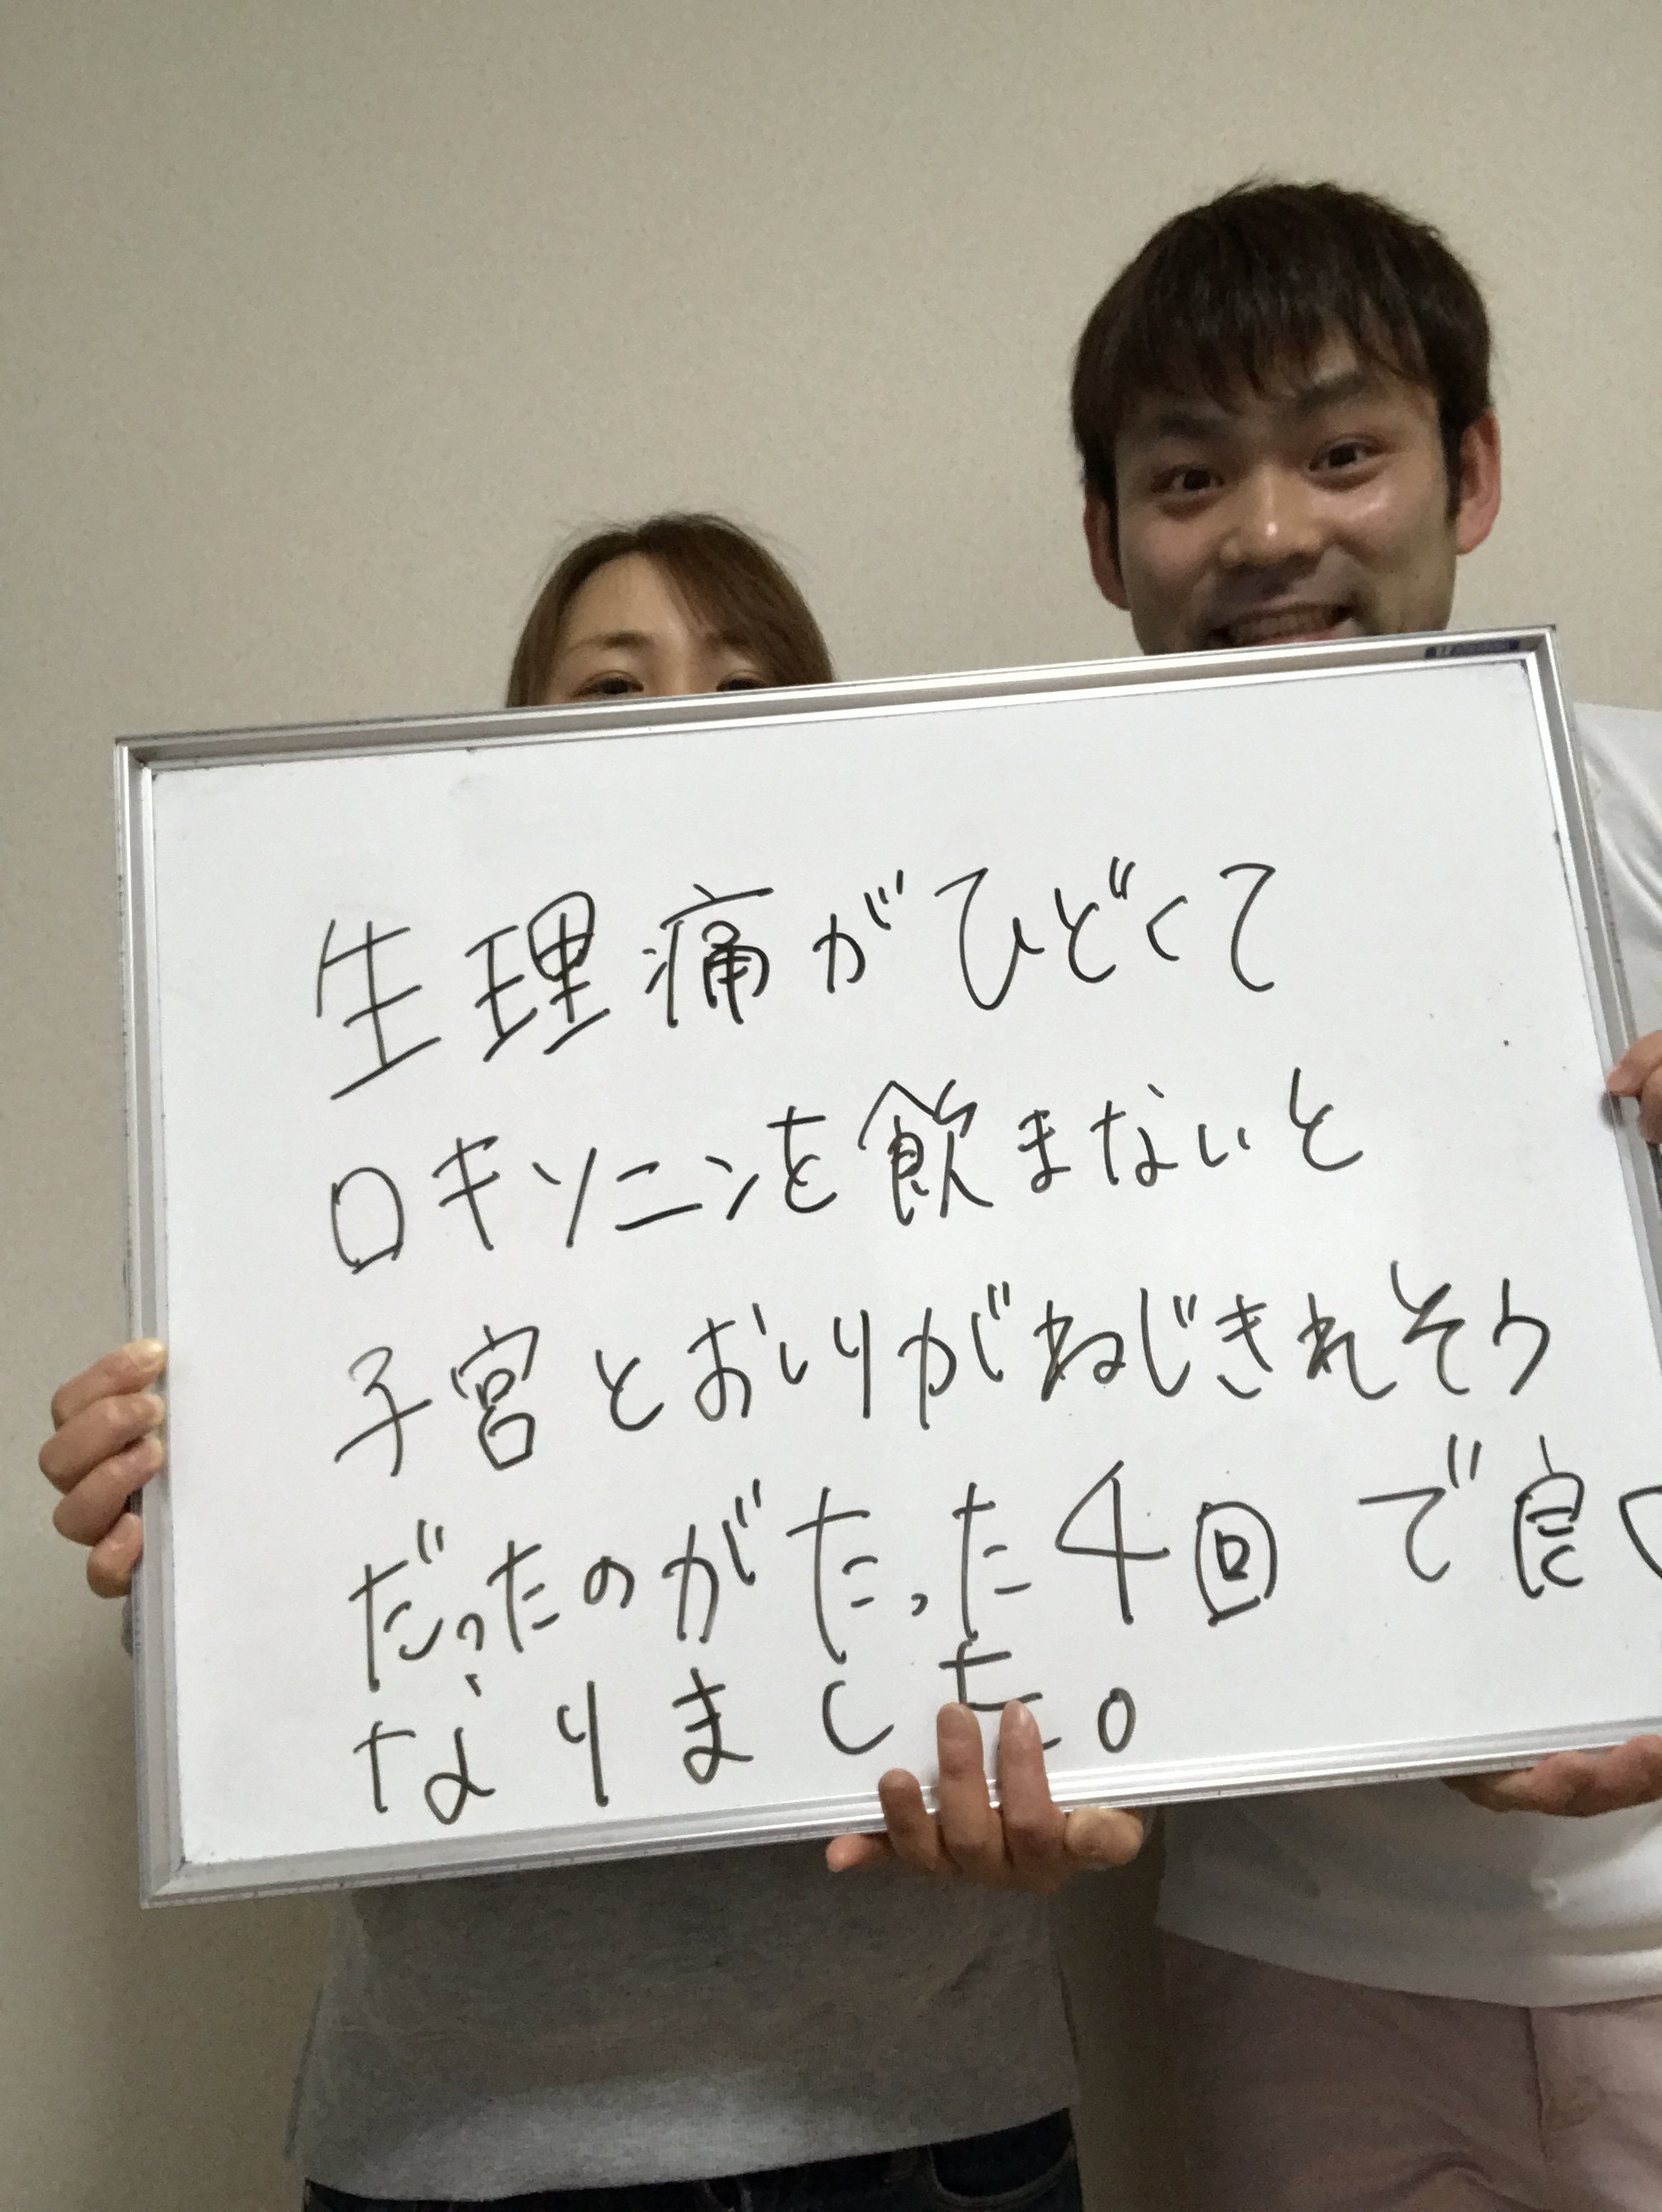 生理痛がひどくて
ロキソニンを飲まないと
子宮とおしりがねじきれそう
だったのがたった4回で良く
なりました。